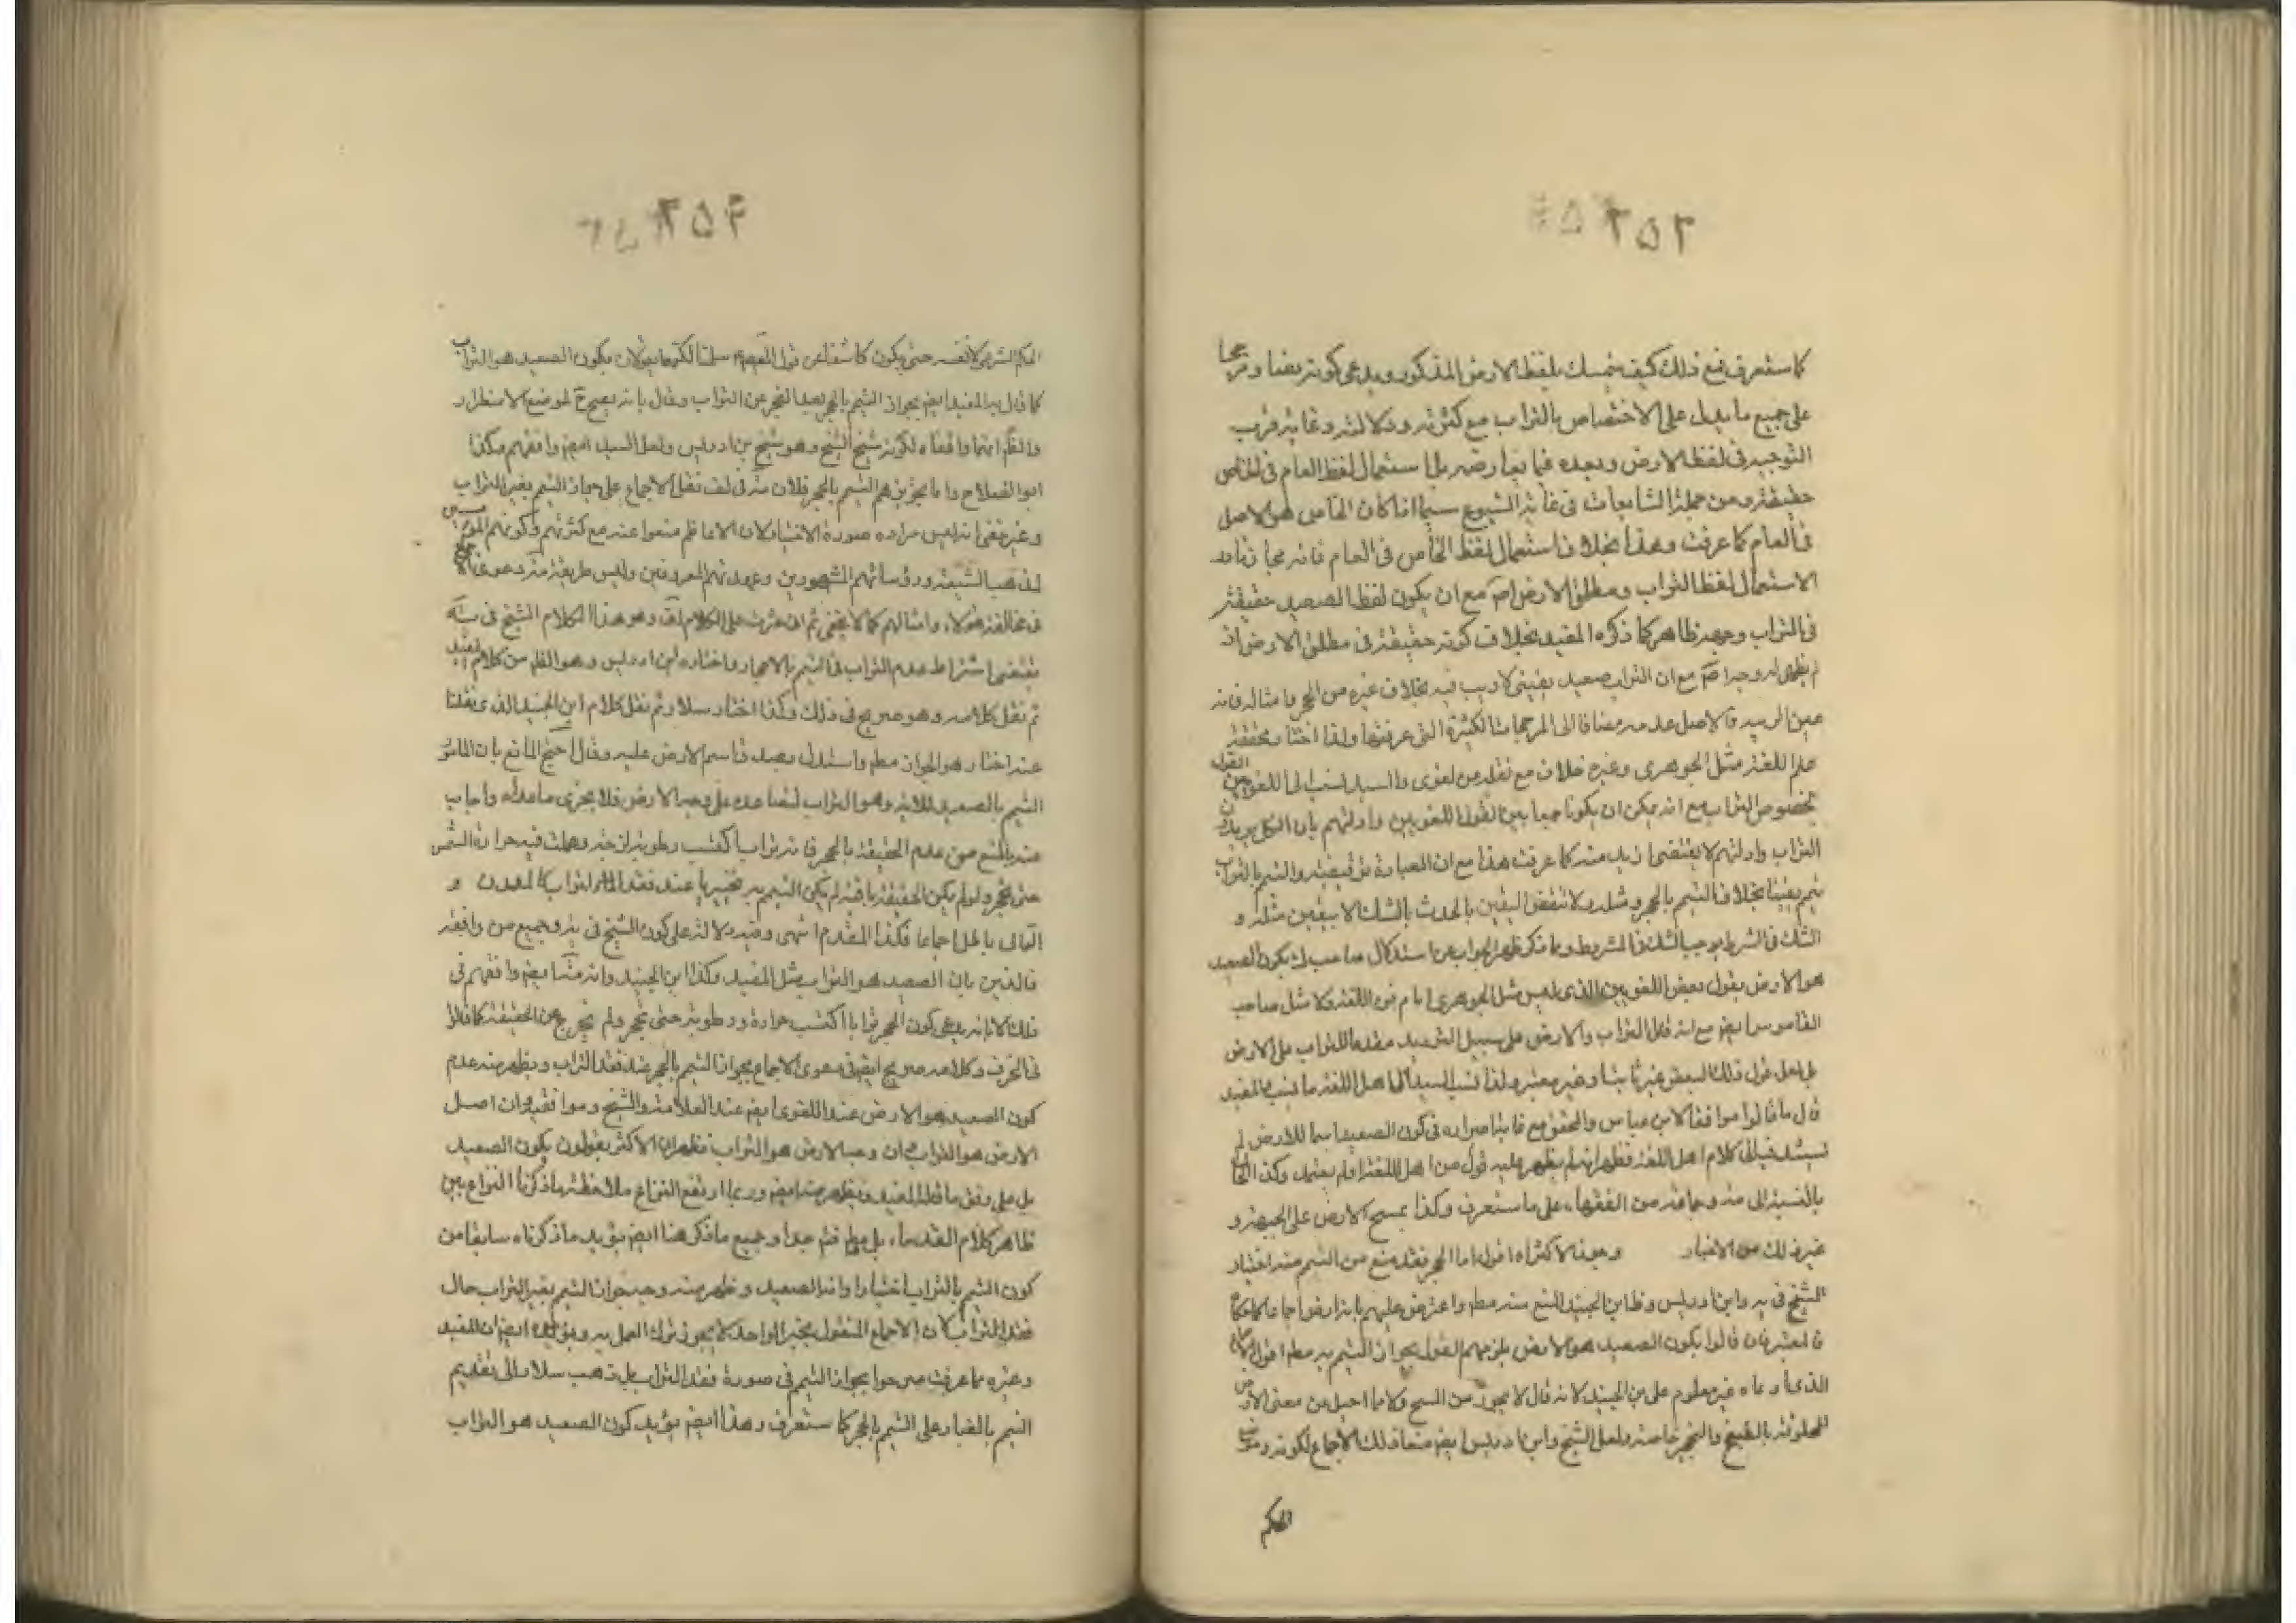 ٢٥٢
كما ستعرف فمع ذلك كيف يتمسك بلفظ الارض المذكور ويدعى كونه نصا ومرجحا
على جميع ما يدل على الاختصاص بالتراب مع كثرته ودلالته وغاية قرب
التوجيه فى لفظ الارض وبعده فيما يعارضه بل استعمال لفظ العام فى الخاص
حقيقة ومن جملة الشايعات فى غاية الشيوع سيما اذا كان الخاص هو الاصل
فى العام كما عرفت وهذا بخلاف استعمال لفظ الخاص فى العام فانه مجاز
الاستعمال لفظ التراب ومطلق الارض مع ان يكون لفظ الصعيد حقيقة
فى التراب وجهه ظاهر كما ذكره المفيد بخلاف كونه حقيقة فى مطلق الارض اذ
لم يظهر له وجه مع ان التراب صعيد يقينى لا ريب فيه بخلاف غيره من الحجر وامثاله فانه
عين الريبة والاصل عدمه مضافا الى المرجحات الكثيرة التى عرفتها ولذا اختار
علم اللغة مثل الجوهرى وغيره خلاف مع نقله عن لغوى والسيد نسب الى اللغويين القول
بخصوص التراب مع انه يمكن ان يكون جمعا بين القول اللغويين وادلتهم بان الكل يريدون
التراب وادلتهم لا يقتضى ازيد منه كما عرفت هذا مع ان العبادة توقيفية والتيمم بالتراب
تيمم يقينا بخلاف التيمم بالحجر ومثله ولا تنقض اليقين بالحدث بالشك الا بيقين مثله و
الشك فى الشرط يوجب الشك فى المشروط وبما ذكر ظهر الجواب عن استدلال صاحب بكون الصعيد
هو الارض بقول بعض اللغويين الذى ليس مثل الجوهرى امام فن اللغة ولا مثل صاحب
القاموس ايضا مع انه قال التراب والارض على سبيل الترديد مقدما للتراب على الارض
بل لعل قول ذلك البعض غير ثابت وغير معتبر ولذا نسب السيد الى اهل اللغة ما نسب المفيد
قال ما قالوا موافقا لابن عباس والمحقق مع غاية اصراره فى كون الصعيد اسما للارض لم
يستند فيه الى كلام اهل اللغة فظهر انه لم يظهر عليه قول من اهل اللغة او لم يعتمد وكذا الحال
بالنسبة الى وجماعة من الفقهاء على ما ستعرف وكذا يمسح الارض على الجبهة و
غير ذلك من الاخبار وهون الاكثر اه اقول اما الحجر فقد منع من التيمم منه اختيارا
الشيخ فى يه وابن ادريس وظاهر ابن الجنيد المنع منه مطلقا واعترض عليهم بانه ارض اجماعا
فالمعتبر فان قالوا بكون الصعيد هو الارض يلزمهم القول بجواز التيمم به مطلقا اقول الاجماع
الذى ادعاه غير معلوم على ابن الجنيد لانه قال لا يجوز من السبخ ولا مما احيل من معنى الارض
المخلوقة بالطبخ والتحجر خاصة ولعل الشيخ وابن ادريس ايضا منعا ذلك الاجماع لكونه
الحكم
٢٥٣
الحكم الشرعى لا نفسه حتى يكون كاشفا عن قول المعصوم سلمنا لكن يقولان بكون الصعيد هو التراب
كما قال به المفيد ايضا بجواز التيمم بالحجر بعد العجز عن التراب وقال بانه يصح لموضع الاضطرار
والظاهر انهما وافقاه لكونه شيخ الشيخ وهو شيخ بن ادريس ولعل السيد ايضا وافقهم وكذا
ابو الصلاح واما تجويزهم التيمم بالحجر فلان فى نقل الاجماع على جواز التيمم بغير التراب
وغير خفى انه ليس مراده صورة الاختيار لان الاعاظم منعوا عنه مع كثرتهم وكونهم المؤسسين
لمذهب الشيعة ورؤسائهم المشهورين وعمدتهم المعروفين وليس طريقة دعوى الاجماع
فى مخالفة هؤلاء وامثالهم كما لا يخفى ثم انى عثرت على الكلام وهو هذا الكلام الشيخ فى
يقتضى اشتراط عدم التراب فى التيمم بالاحجار واختاره ابن ادريس وهو الظاهر من كلام المفيد
ثم نقل كلامه وهو صريح فى ذلك وكذا اختار سلار ثم نقل كلام ابن الجنيد الذى نقلنا
عنه اختار هو الجواز مطلقا واستدل بصدق اسم الارض عليه وقال احتج المانع بان المأمور
التيمم بالصعيد للاية وهو التراب الصاعد على وجه الارض فلا يجزى ما عداه واجاب
عنه بالمنع من عدم الحقيقة بالحجر فانه تراب اكتسب رطوبة لزجة وعملت فيه حرارة الشمس
حتى تحجر ولو لم يكن الحقيقة باقية لم يكن التيمم به مجزيا عند فقد التراب كالمعدن و
التالى باطل اجماعا فكذا المقدم انتهى وفيه دلالة على كون الشيخ فى يه وجميع من وافقه
قائلين بان الصعيد هو التراب مثل المفيد وكذا ابن الجنيد وانه ايضا وافقهم فى
ذلك الا انه يدعى كون الحجر ترابا اكتسب حرارة ورطوبة حتى تحجر ولم يخرج عن الحقيقة كما قلنا
فى الخزف وكلامه صريح ايضا فى دعوى الاجماع بجواز التيمم بالحجر عند فقد التراب ويظهر منه عدم
كون الصعيد هو الارض عند اللغوى ايضا عند العلامة والشيخ وموافقيه وان اصل
الارض هو التراب وان وجه الارض هو التراب فظهر ان الاكثر يقولون بكون الصعيد
بل على وفق ما قاله المفيد ويظهر منه ايضا وربما ارتفع النزاع بملاحظة ما ذكرنا النزاع بين
ظاهر كلام القدماء بل وجميع ما ذكر هنا ايضا يؤيد ما ذكرناه سابقا من
كون التيمم بالتراب اختيارا وانه الصعيد وظهر منه وجه جواز التيمم بغير التراب حال
فقد التراب لان الاجماع المنقول بخبر الواحد لا يجوز ترك العمل به ويؤيده ايضا ان المفيد
وغيره مما عرفت صرحوا بجواز التيمم فى صورة فقد التراب بل ذهب سلار الى تقديم
التيمم بالغبار على التيمم بالحجر كما ستعرف وهذا ايضا يؤيد كون الصعيد هو التراب